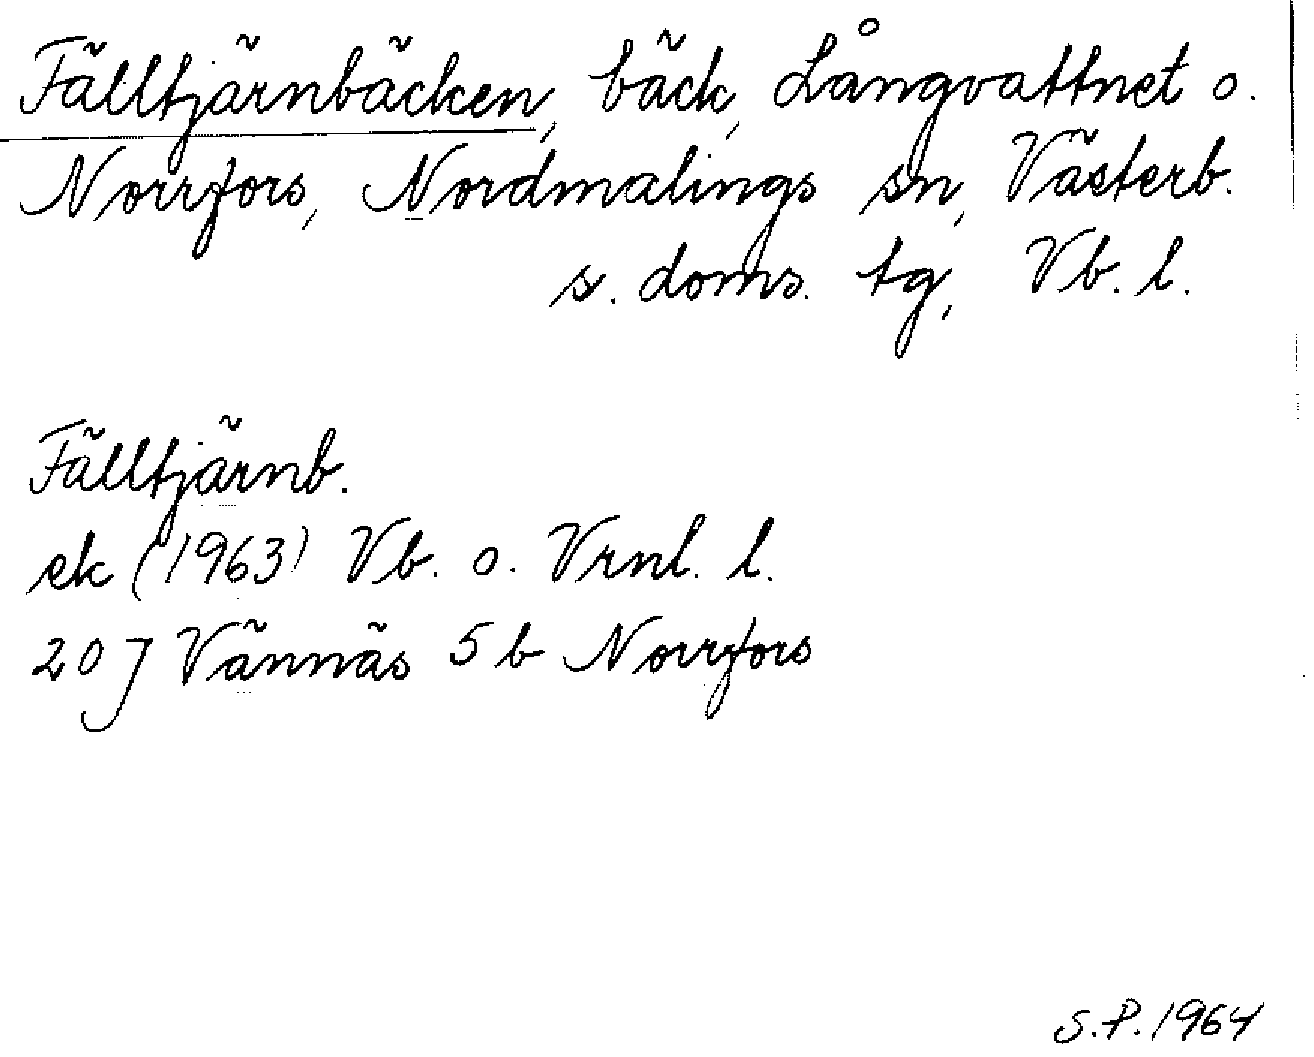 Fälltjärnbäcken, bäck, Långvattnet o.
Norrfors, Nordmalings sn, Västerb.
s. doms. tg, Vb. l.
Fälltjärnb.
ek (1963) Vb. o. Vrnl. l.
20J Vännäs 5b Norrfors
S.P. 1964